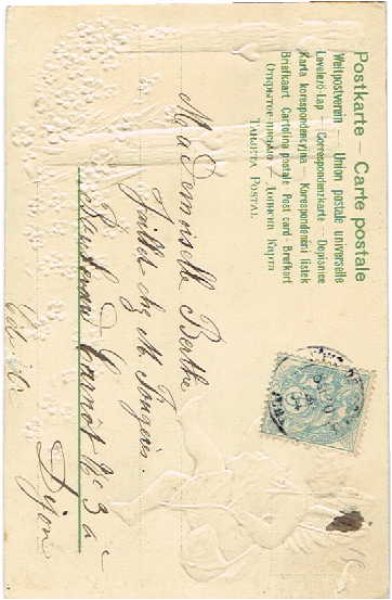 Postkarte – Carte postale
Weltpostverein – Union postale universelle
Levelező-Lap – Correspondenzkarte – Dopisnice
Karta korespondencyjna – Korespondenční listek
Briefkaart Cartolina postale Post card – Brefkort
Открытое письмо – Дописна Карта
TARJETA POSTAL
MaDemoiselle Berthe
Jaillet chez M Fougères.
Boulevard Carnot No 3 à
Dijon
Côte